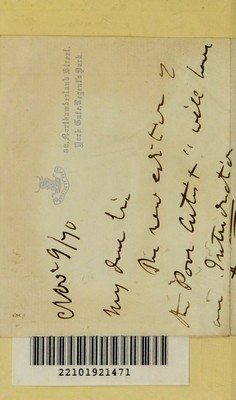 22, Northumberland Street,
York Gate, Regent's Park.
Nov 9/70
My dear Sir
The new edition of
the "Poor Artist" will have
an Introduction
22101921471